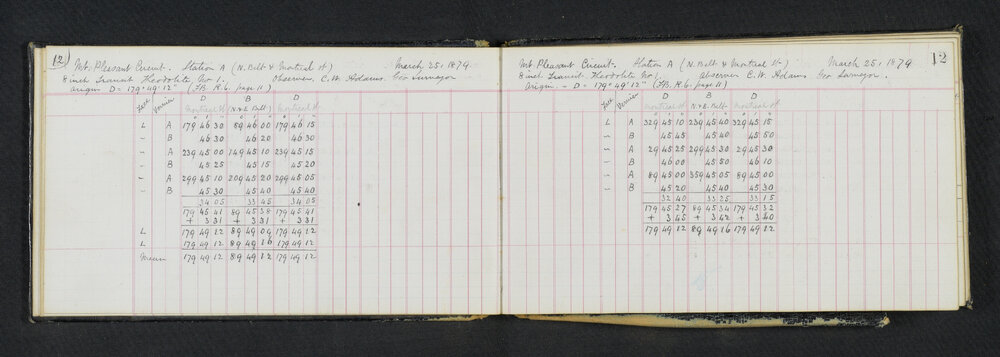 12
Mt. Pleasant Circuit. Station A (N. Belt & Montreal St) March 25, 1879
8 inch Transit Theodolite No 1. Observer, C. W. Adams. Geo Surveyor
Origin D = 179° 49' 12" (F.B. R. 6. page 11)
D B D
Face Vernier Montreal St (N & E Belt) Montreal St
° ' " ° ' " ° ' "
L A 179 46 30 89 46 00 179 46 15
" B 46 30 46 20 46 30
" A 239 45 00 149 45 10 239 45 15
" B 45 25 45 15 45 20
" A 299 45 10 209 45 20 299 45 05
" B 45 30 45 40 45 40
34 05 33 45 34 05
179 45 41 89 45 38 179 45 41
+ 3 31 + 3 31 + 3 31
L 179 49 12 89 49 09 179 49 12
L 179 49 12 89 49 16 179 49 12
Mean 179 49 12 89 49 12 179 49 12
12
Mt. Pleasant Circuit. Station A (N. Belt & Montreal St) March 25, 1879
8 inch Transit Theodolite No 1. Observer C. W. Adams. Geo Surveyor.
Origin. - D = 179° 49' 12" (F.B. R. 6. page 11)
D B D
Face Vernier Montreal St N & E. Belt Montreal St
° ' " ° ' " ° ' "
L A 329 45 10 239 45 40 329 45 15
" B 45 45 45 40 45 50
" A 29 45 25 299 45 30 29 45 30
" B 46 00 45 50 46 10
" A 89 45 00 359 45 05 89 45 00
" B 45 20 45 40 45 30
32 40 33 25 33 15
179 45 27 89 45 34 179 45 32
+ 3 45 + 3 42 + 3 40
179 49 12 89 49 16 179 49 12